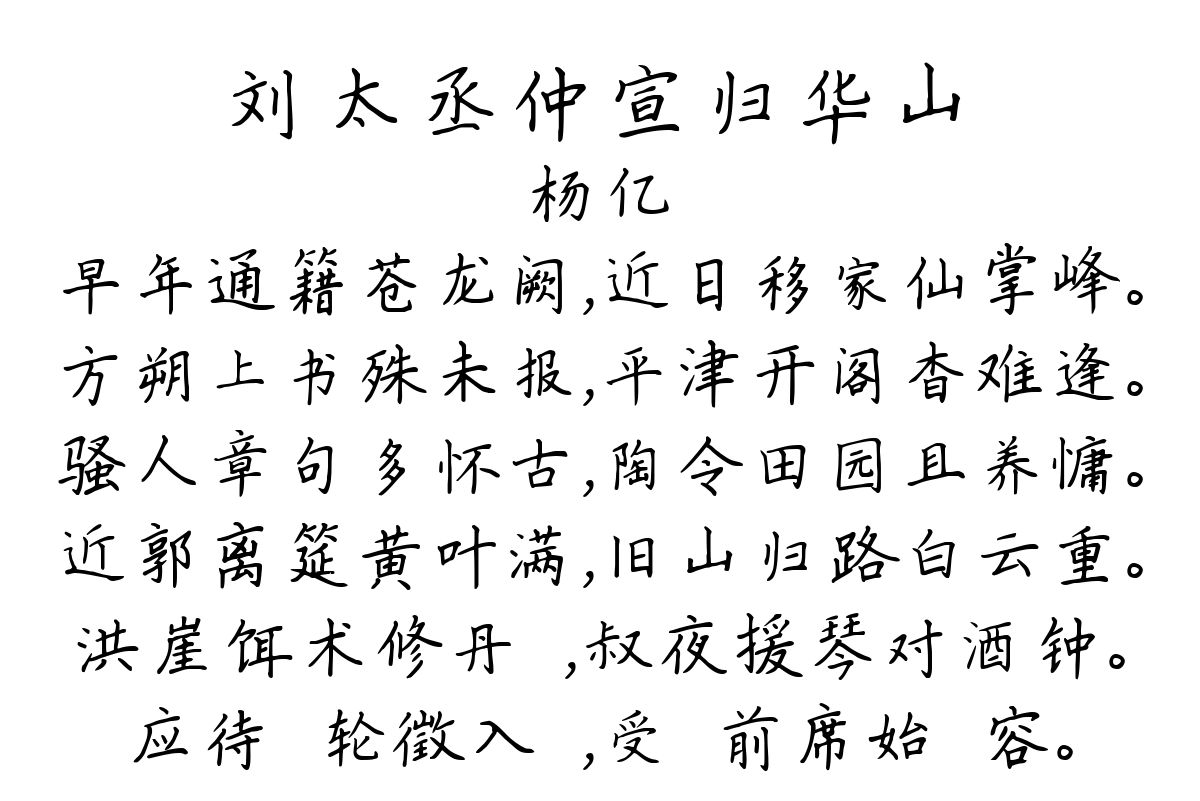 刘太丞仲宣归华山
杨亿
早年通籍苍龙阙,近日移家仙掌峰。
方朔上书殊未报,平津开阁杳难逢。
骚人章句多怀古,陶令田园且养慵。
近郭离筵黄叶满,旧山归路白云重。
洪崖饵术修丹 ,叔夜援琴对酒钟。
应待 轮徵入 ,受 前席始 容。